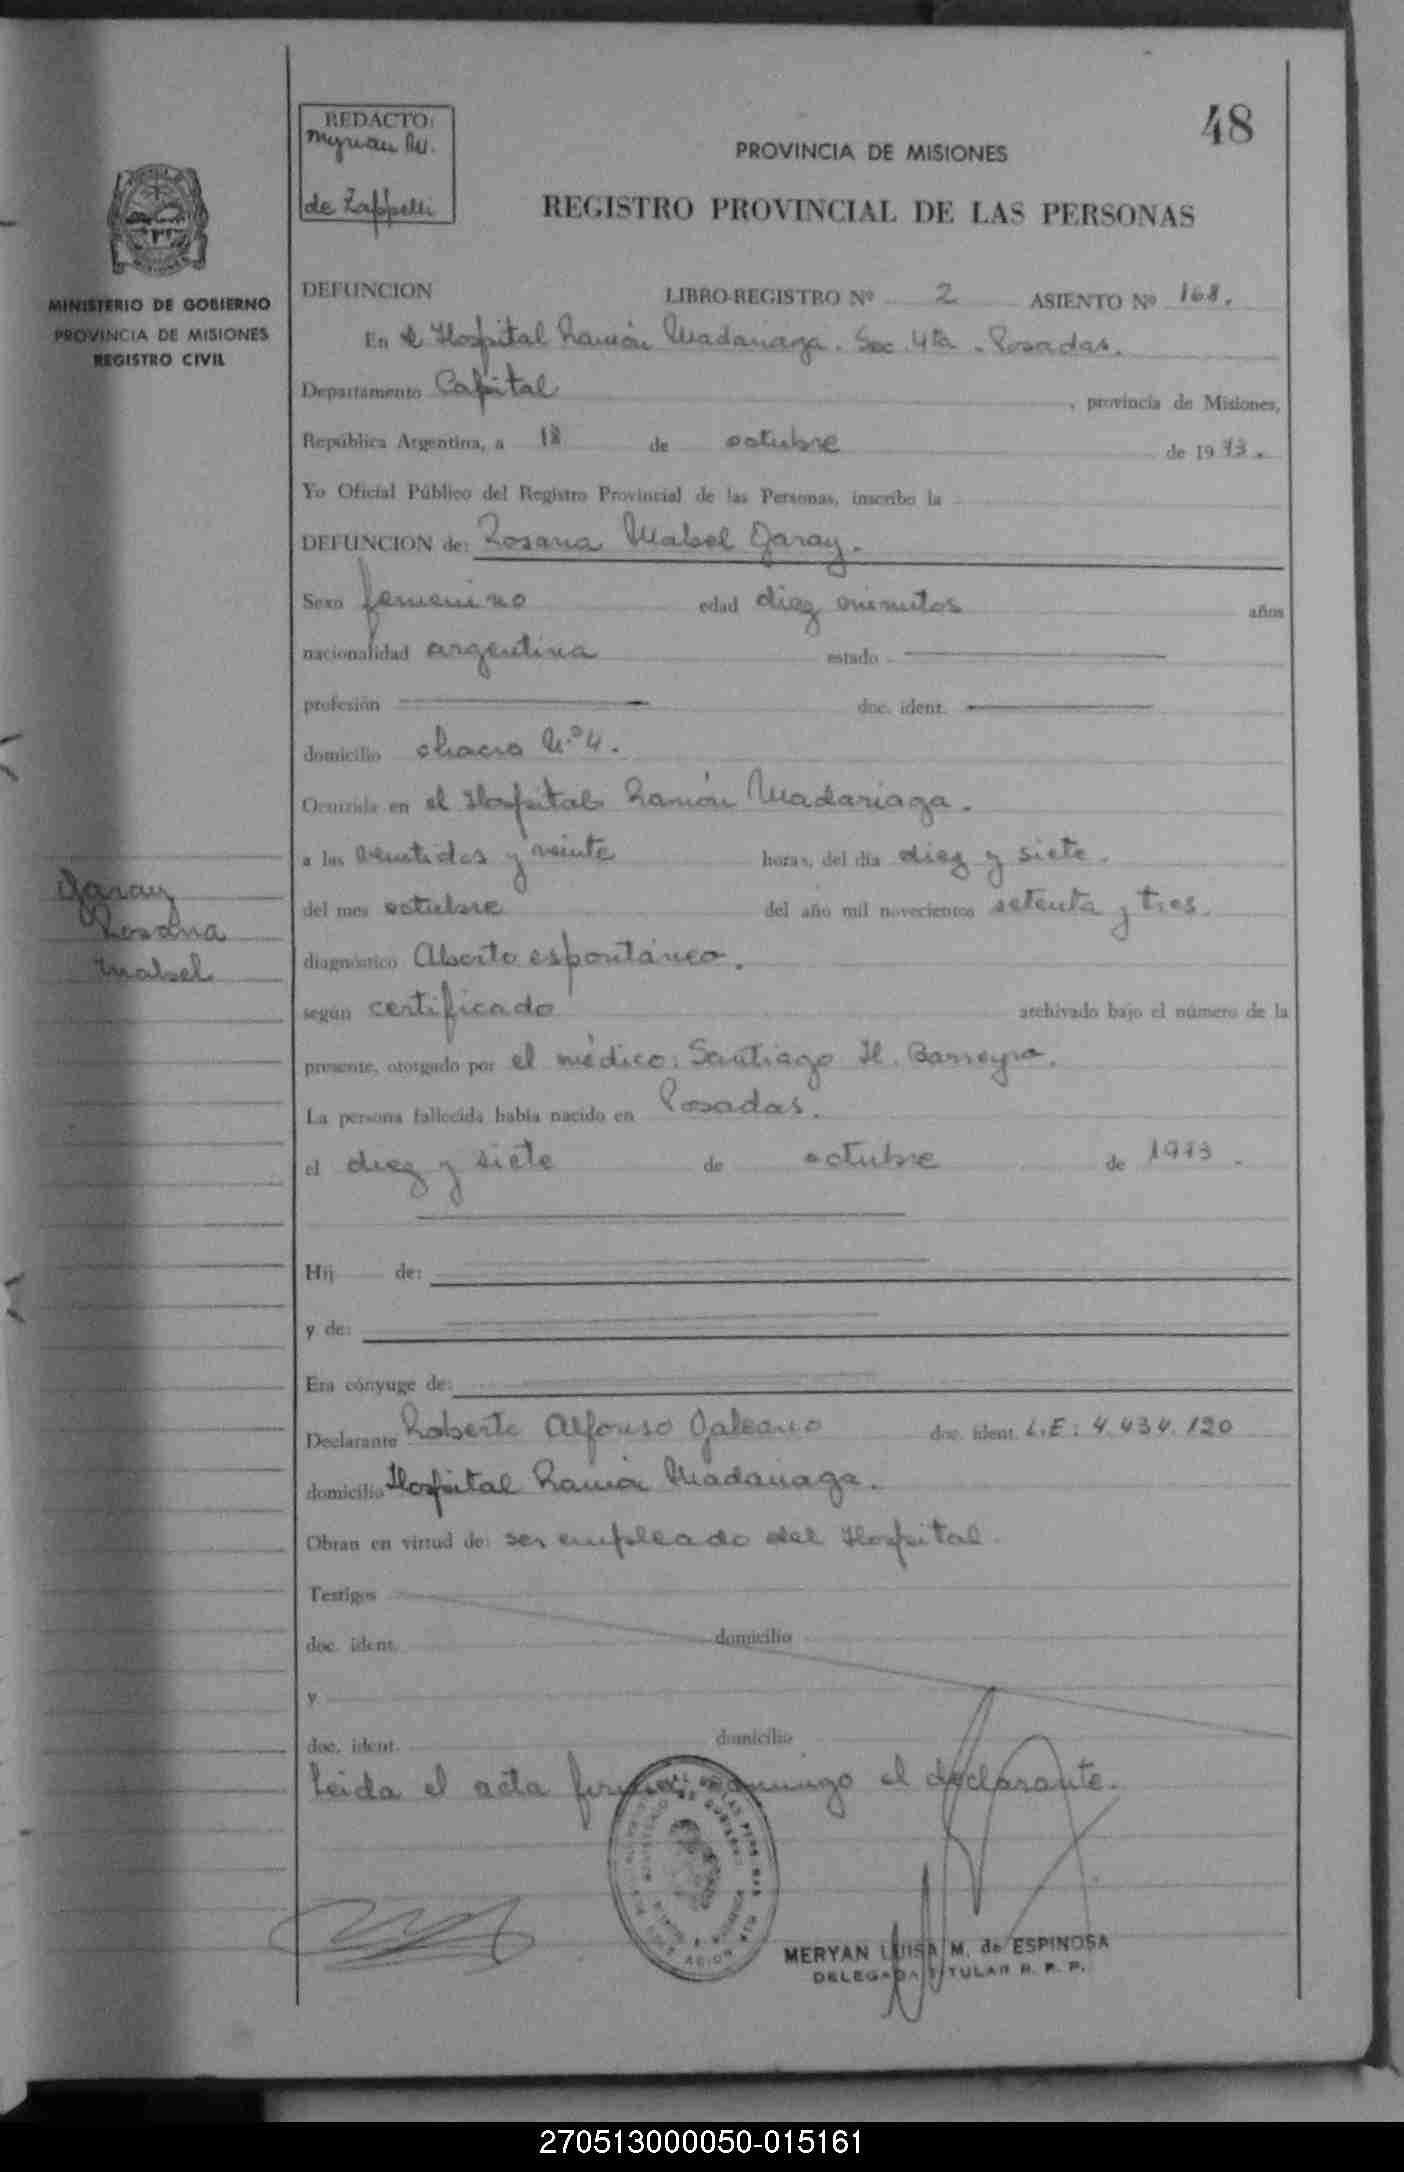 48
REDACTO:
Myrian M.
de Zappelli
PROVINCIA DE MISIONES
REGISTRO PROVINCIAL DE LAS PERSONAS
MINISTERIO DE GOBIERNO
PROVINCIA DE MISIONES
REGISTRO CIVIL
DEFUNCION LIBRO-REGISTRO Nº 2 ASIENTO Nº 168.
En el Hospital Ramón Madariaga. Sec. 4ta. Posadas.
Departamento Capital , provincia de Misiones,
República Argentina, a 18 de octubre de 1973.
Yo Oficial Público del Registro Provincial de las Personas, inscribo la
DEFUNCION de: Rosana Mabel Garay.
Sexo femenino edad diez minutos años
nacionalidad argentina estado
profesión doc. ident.
domicilio chacra N.º 4.
Ocurrida en el Hospital Ramón Madariaga.
a las veintidos y veinte horas, del día diez y siete.
del mes octubre del año mil novecientos setenta y tres.
diagnóstico Aborto espontáneo.
según certificado archivado bajo el número de la
presente, otorgado por el médico: Santiago H. Barreyro.
La persona fallecida había nacido en Posadas.
el diez y siete de octubre de 1973.
Garay
Rosana
Mabel
Hij de:
y de:
Era cónyuge de:
Declarante Roberto Alfonso Galeano doc. ident. L.E: 4.434.120
domicilio Hospital Ramón Madariaga.
Obran en virtud de: ser empleado del Hospital.
Testigos
doc. ident. domicilio
y
doc. ident. domicilio
Leida el acta firma conmigo el declarante.
MERYAN LUISA M. de ESPINOSA
DELEGADA TITULAR R. P. P.
270513000050-015161